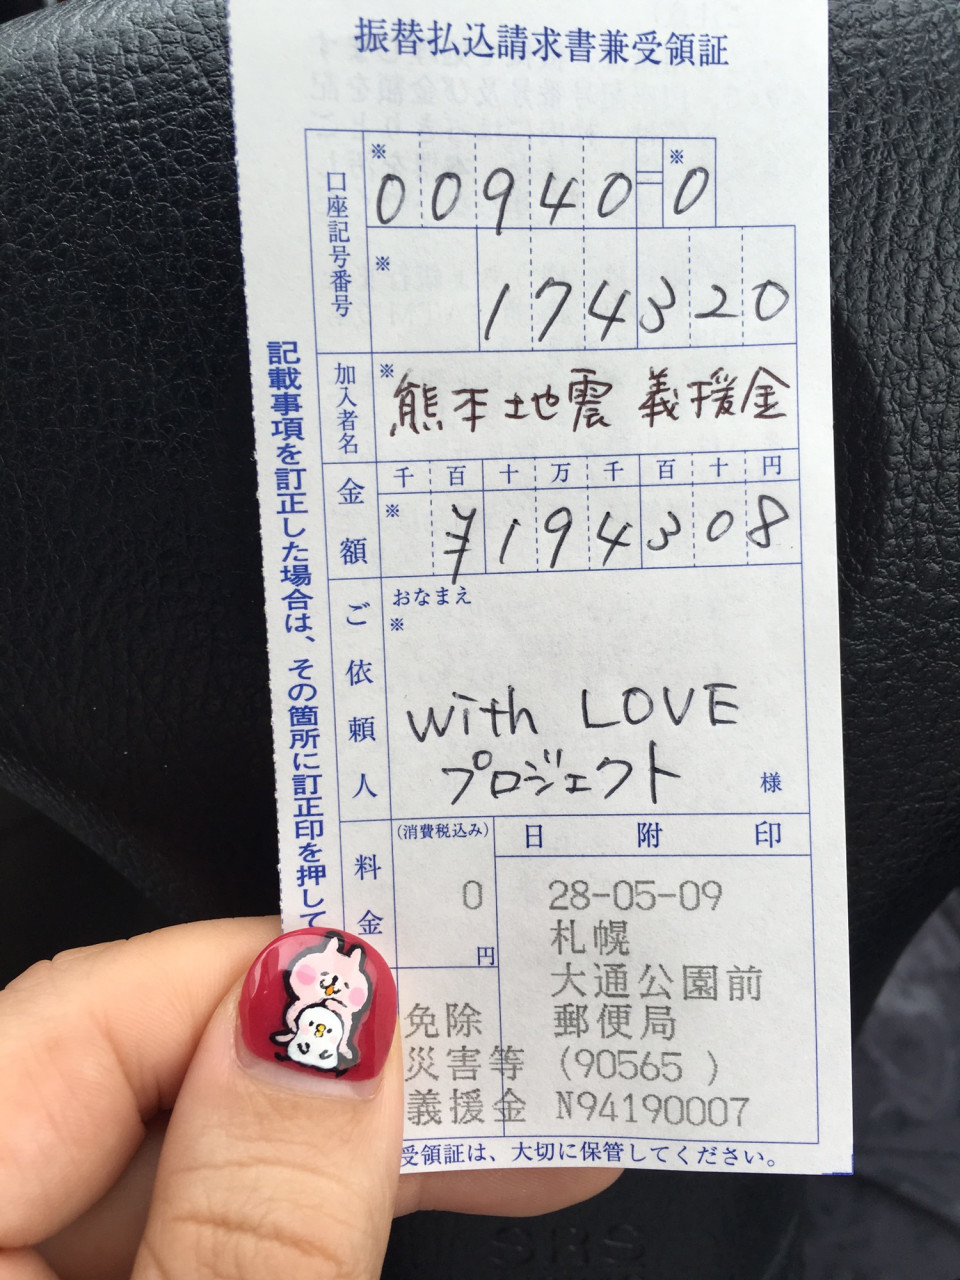 振替払込請求書兼受領証
口座記号番号
※ 00940=※0
※ 174320
加入者名
※ 熊本地震 義援金
金額
千 百 十 万 千 百 十 円
※ ¥194308
ご依頼人
おなまえ
※
with LOVE
プロジェクト 様
料金
(消費税込み)
0
円
日 附 印
28-05-09
札幌
大通公園前
郵便局
(90565 )
N94190007
免除
災害等
義援金
記載事項を訂正した場合は、その箇所に訂正印を押して
受領証は、大切に保管してください。